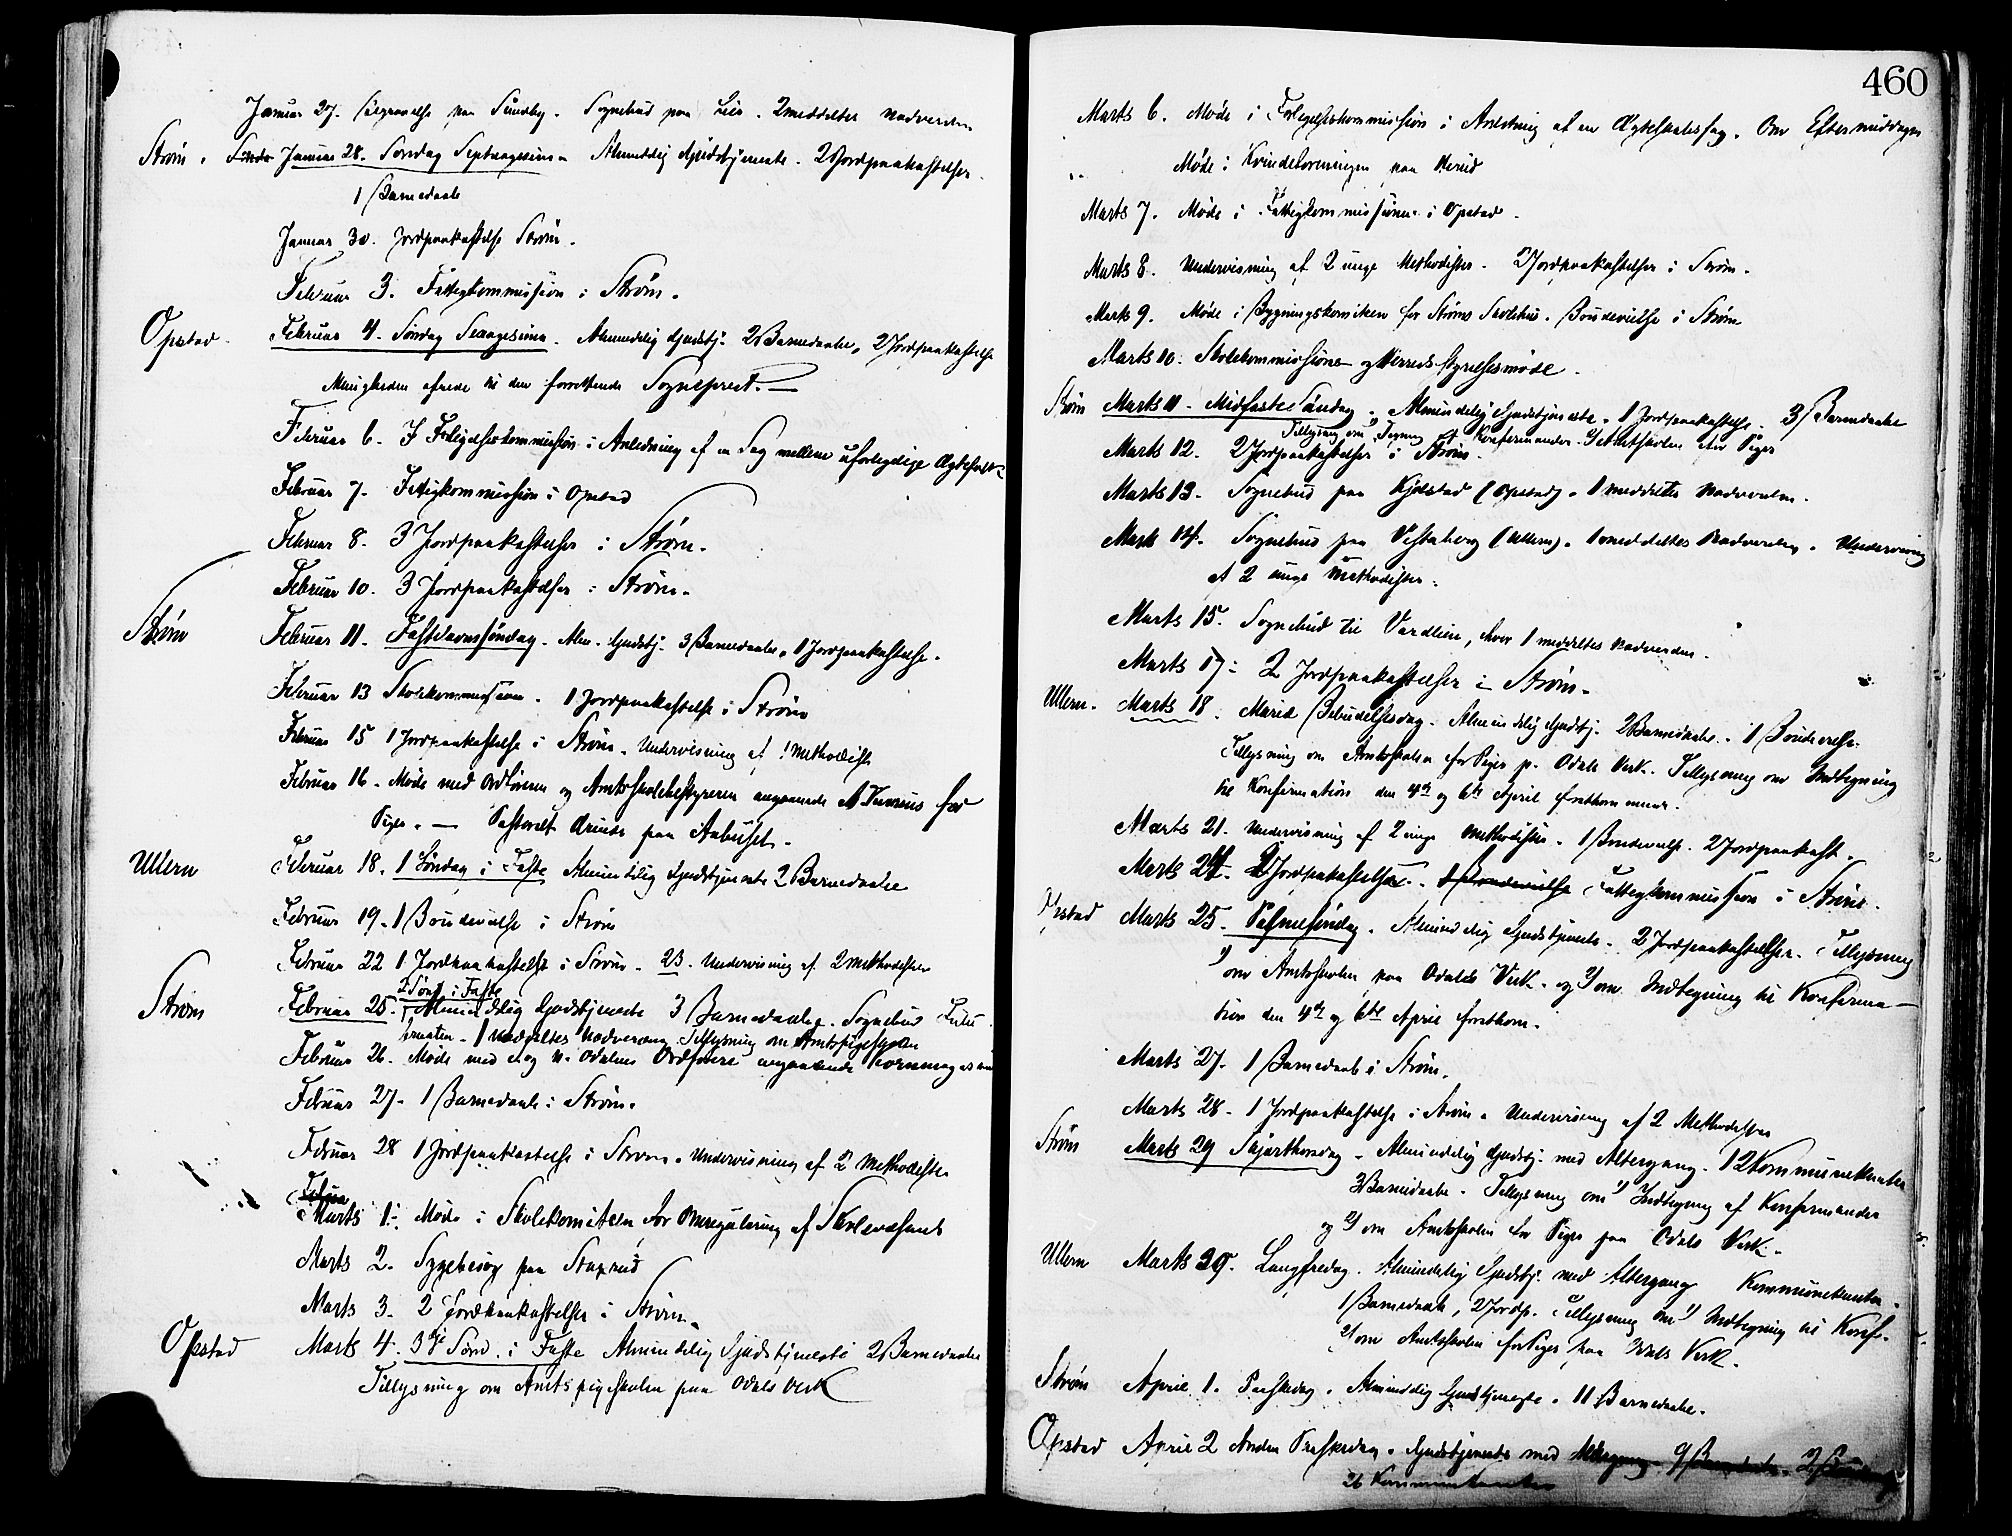 Januar 27. Ligprædike paa Sundby. Sognebud paa Lier. 2 meddeltes Nadverden
Strøm. Januar 28. Søndag Septuagesima. Almindelig Gudstjeneste. 2 Jordpaakastelser.
1 Barnedaab
Januar 30. Jordpaakastelse Strøm.
Februar 3. Fattigkommission i Strøm.
Opstad. Februar 4. Søndag Sexagesima. Almindelig Gudstj. 2 Barnedaabe, 2 Jordpaakastelse
Menigheden til den Sogneprest.
Februar 6. I Forligelseskommission i Anledning af en Sag mellem uforligelige Ægtefolk
Februar 7. Fattigkommission i Opstad
Februar 8. 3 Jordpaakastelser i Strøm.
Februar 10. 3 Jordpaakastelser i Strøm.
Strøm Februar 11. Fastelavnssøndag. Alm. Gudstj. 3 Barnedaabe, 1 Jordpaakastelse.
Februar 13 Skolekommission. 1 Jordpaakastelse i Strøm
Februar 15 1 Jordpaakastelse i Strøm. Undervisning af 1 Methodist
Februar 16. Møde med Ordføreren og Amtsskolebestyreren angaaende for
Piger. — paa
Ullern Februar 18. 1 Søndag i Faste Almindelig Gudstjeneste 2 Barnedaabe
Februar 19. 1 Brudevielse i Strøm
Februar 22 1 Jordpaakastelse i Strøm. 23. Undervisning af 2 Methodister
2 Sønd. i Faste
Strøm Februar 25. Almindelig Gudstjeneste 3 Barnedaabe. Sognebud
1 meddeltes Nadveren. Tillysning om Amtspigeskolen
Februar 26. Møde med s. og n. Odalens Ordførere angaaende Kornmagasin
Februar 27. 1 Barnedaab i Strøm.
Februar 28 1 Jordpaakastelse i Strøm. Undervisning af 2 Methodister
Februar
Marts 1. Møde i Skolekomiteen for Omregulering af Skolevæsenet
Marts 2. Sygebesøg paa
Marts 3. 2 Jordpaakastelser i Strøm.
Opstad Marts 4. 3die Sønd. i Faste Almindelig Gudstjeneste 2 Barnedaabe
Tillysning om Amtspigeskolen paa Odals Verk
460
Marts 6. Møde i Forligelseskommission i Anledning af en Ægteskabssag. Om Eftermiddagen
Møde i Kvindeforeningen paa Herud
Marts 7. Møde i Fattigkommissionen i Opstad.
Marts 8. Undervisning af 2 unge Methodister. 2 Jordpaakastelser i Strøm.
Marts 9. Møde i Bygningskomiteen for Strøms Skolehus. Brudevielse i Strøm
Marts 10. Skolekommissions og Herredsstyrelsesmøde.
Strøm Marts 11. Midfaste Søndag. Almindelig Gudstjeneste. 1 Jordpaakastelse. 3 Barnedaabe
Tillysning om 1) Tegning af Konfirmander 2) Amtskolen for Piger
Marts 12. 2 Jordpaakastelser i Strøm.
Marts 13. Sognebud paa Kjølstad (Opstad). 1 meddeltes Nadverden.
Marts 14. Sognebud paa Vestaberg (Ullern). 1 meddeltes Nadverden. Undervisning
af 2 unge Methodister.
Marts 15. Sognebud til Vardlien, hvor 1 meddeltes Nadverden.
Marts 17. 2 Jordpaakastelser i Strøm.
Ullern. Marts 18. Mariæ Bebudelsesdag. Almindelig Gudstj. 2 Barnedaabe. 1 Brudevielse.
Tillysning om Amtsskolen for Piger p. Odals Verk. Tillysning om Indtegning
til Konfirmation den 4de og 6te April førstkommende.
Marts 21. Undervisning af 2 unge Methodister. 1 Brudevielse. 2 Jordpaakast.
Marts 24. 2 Jordpaakastelser. 1 Brudevielse Fattigkommission i Strøm.
Opstad Marts 25. Palmesøndag. Almindelig Gudstjeneste. 2 Jordpaakastelser. Tillysning
1) om Amtsskolen paa Odals Verk. og 2) om Indtegning til Konfirma-
tion den 4de og 6te April førstkom.
Marts 27. 1 Barnedaab i Strøm.
Marts 28. 1 Jordpaakastelse i Strøm. Undervisning af 2 Methodister
Strøm Marts 29 Skjærthorsdag. Almindelig Gudstj. med Altergang. 12 Kommunikanter
3 Barnedaabe. Tillysning om 1) Indtegning af Konfirmander
og 2) om Amtsskolen for Piger paa Odals Verk.
Ullern Marts 30. Langfredag. Almindelig Gudstj. med Altergang Kommunikanter.
1 Barnedaab, 2 Jordp. Tillysning om 1) Indtegning til Konf.
2) om Amtsskolen for Piger paa Odals Verk.
Strøm April 1. Paaskedag. Almindelig Gudstjeneste. 11 Barnedaabe.
Opstad April 2 Anden Paaskedag. Gudstjeneste med Altergang 9 Barnedaabe. 2
26 Kommunikanter